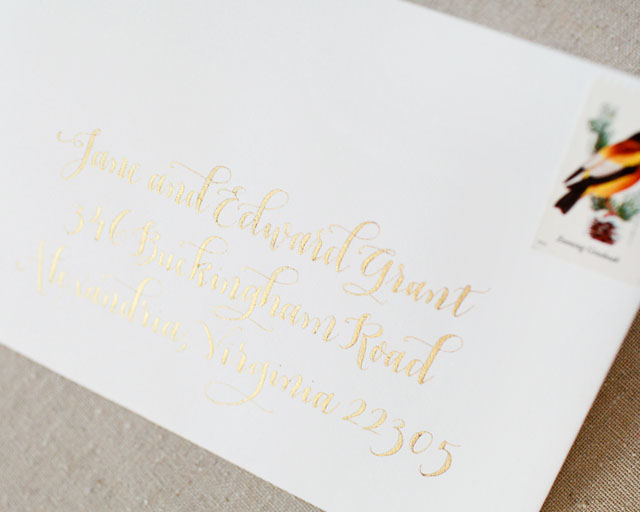 Jane and Edward Grant
346 Buckingham Road
Alexandria, Virginia 22305
Evening Grosbeak